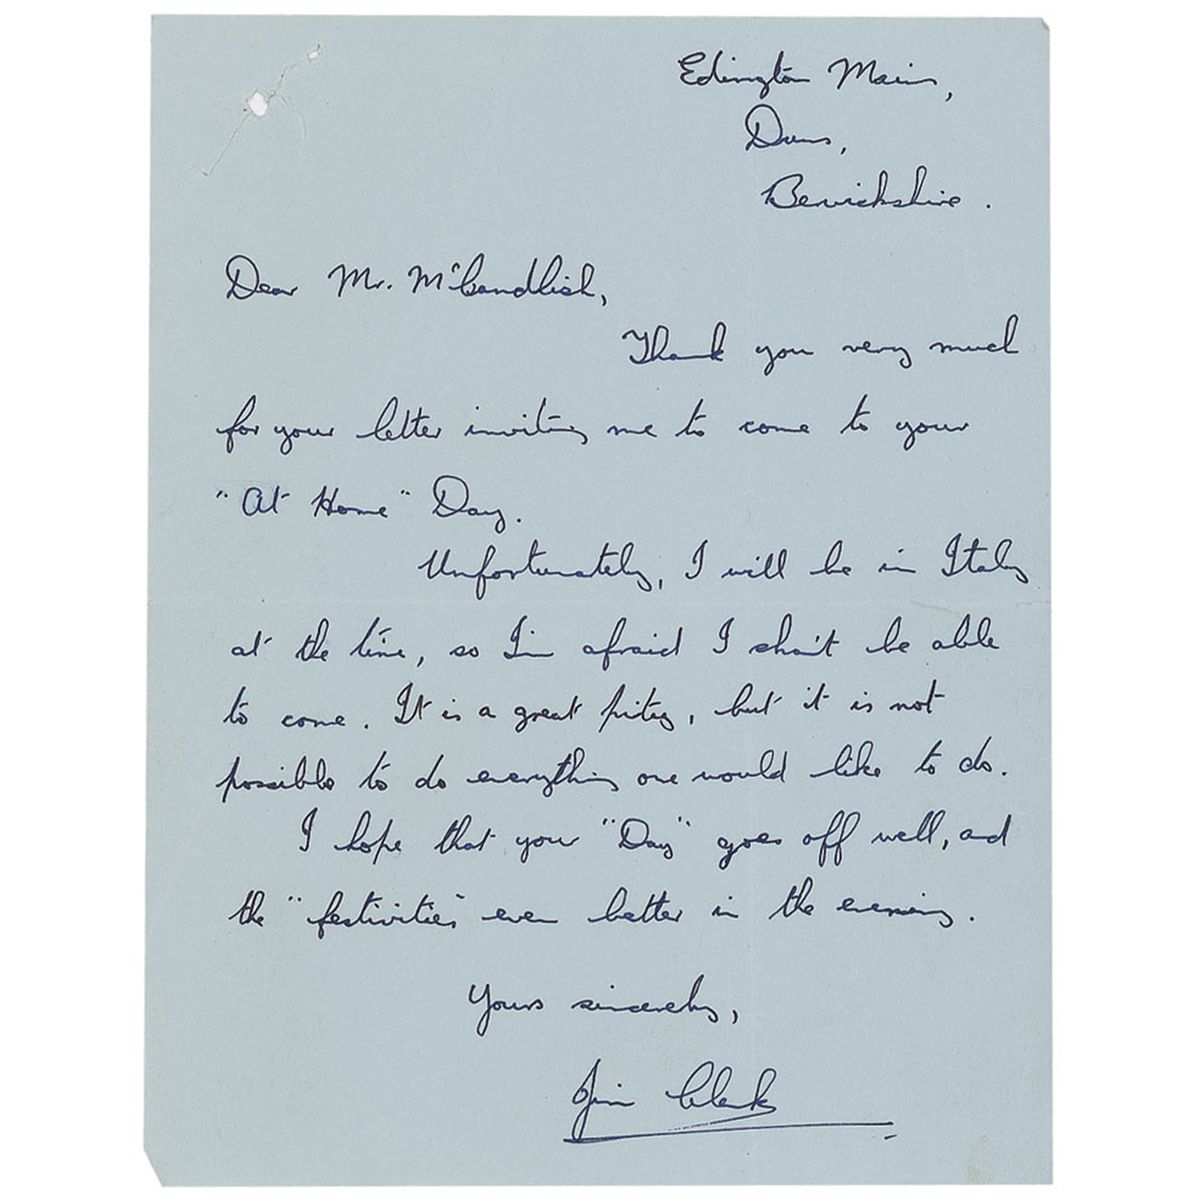 Edington Mains,
Duns,
Berwickshire.
Dear Mr. M'Candlish,
Thank you very much
for your letter inviting me to come to your
"At Home" Day.
Unfortunately, I will be in Italy
at the time, so I'm afraid I shan't be able
to come. It is a great pity, but it is not
possible to do everything one would like to do.
I hope that your "Day" goes off well, and
the "festivities" even better in the evening.
Yours sincerely,
Jim Clark